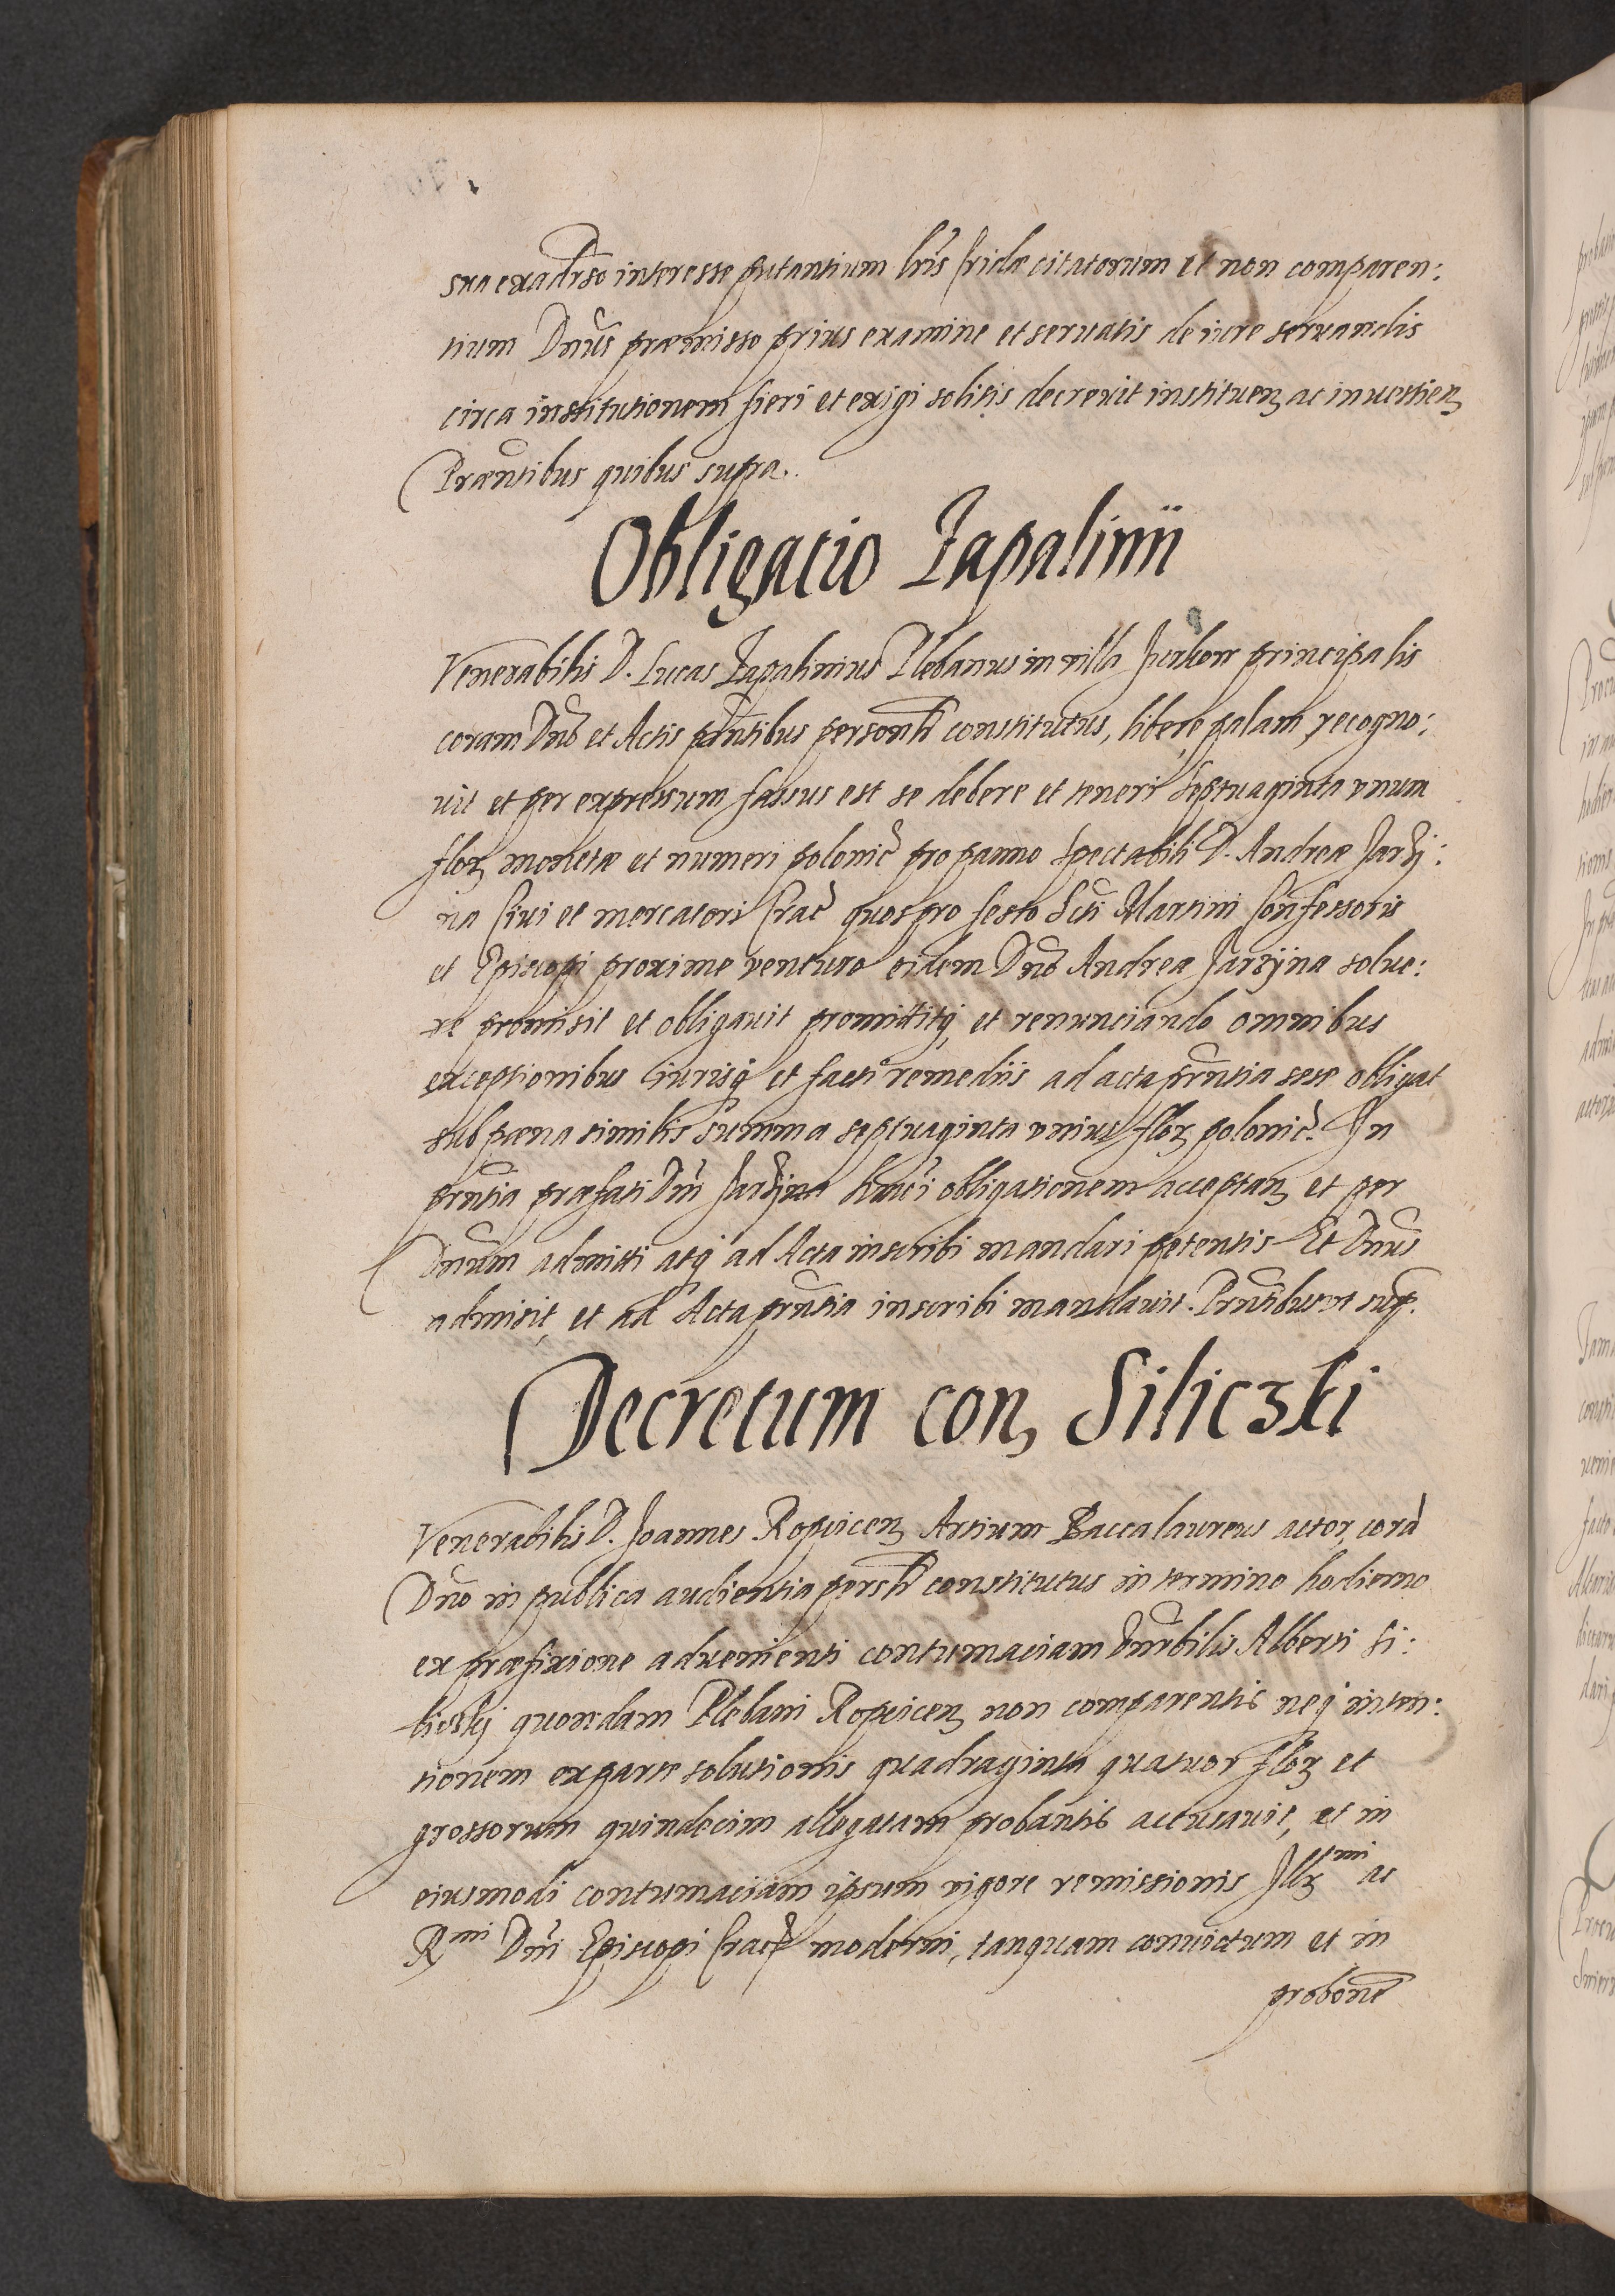 sua ex adũso interesse putantium lrĩs Cridæ citatorum et non comparen:
tium Dnũs præmisso prius examine et seruatis de iure seruandis
circa institutionem fieri et exigi solitis decreuit instituenȝ ac inuestienȝ
Præntibus quibus supra.
Obligatio Zapalinii
Venerabilis D. Lucas Zapalinius Plebanus in villa principalis
coram Dnõ et Actis pñtibus personlr constitutus, libere, palam, recogno:
uit et per expressum fassus est se debere et teneri septuaginta vnum
florȝ monetæ et numeri polonic̃ pro panno spectabili D. Andreæ Jarzÿ:
na Ciui et mercatori Crac̃ quos pro festo Scti Martini Confessoris
et Episcopi proxime venturo eidem Dnõ Andreæ Jarzÿna solue:
re promisit et obligauit promittitq, et renunciando omnibus
exceptionibus iurisq et facti remediis ad acta prñtia sese obligat
sub pæna similis summa septuaginta vnius florȝ polonic̃. In
prñtia præfati Dñi Jarzÿna hmõi obligationem acceptanȝ et per
Dnũm admitti atq ad Acta inscribi mandari petentis Et Dnũs
admisit, et ad Acta prñtia inscribi mandauit. Prñtibus vt sup.
Decretum con, Siliczki
Venerabilis D. Joannes Ropvicenȝ Artium Baccalaureus actor, corã
Dnõ in publica audientia perslr constitutus in termino hodierno
ex præfixione aduenienti contumaciam Alberti Si:
liczkÿ quondam Plebani Ropvicenȝ non comparentis neq inten:
tionem ex parte solutionis quadraginta quatuor florȝ et
grossorum quindecim allegatam probantis accusauit, et in
eiusmodi contumaciam ipsum vigore remissionis Illȝmi ac
Rmi Dñi Episcopi Crac̃ moderni, tanquam conuictum et in
probõne